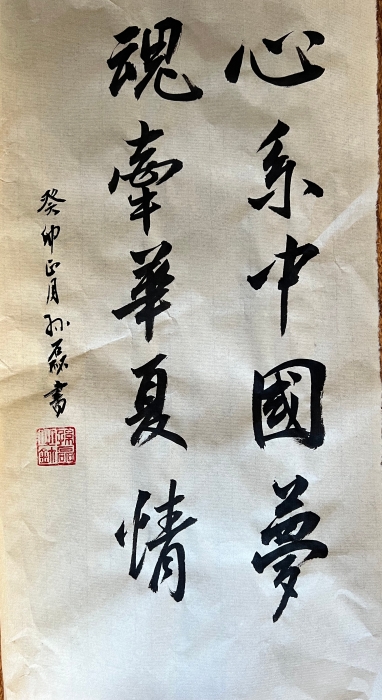 心系中國夢
魂牽華夏情
癸卯正月孙磊書